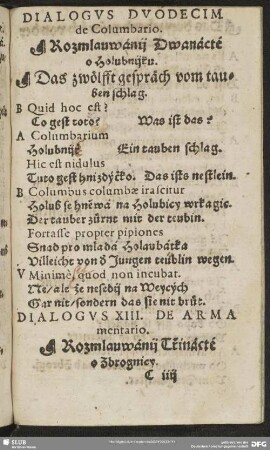 DIALOGVS DVODECIM
de Columbario.
Rozmlauwánij Dwanácté
o Holubnijku.
Das zwölfft gespräch vom tau-
ben schlag.
B Quid hoc est?
Co gest toto? Was ist das?
A Columbarium
Holubnijk Ein tauben schlag.
Hic est nidulus
Tuto gest hnizdyčko. Das ists nestlein.
B Columbus columbæ irascitur
Holub se hněwá na Holubicy wrkagic.
Der tauber zürnt mit der teubin.
Fortasse propter pipiones
Snad pro mladá Holaubátka
Villeicht von d Jungen teüblin wegen.
V Minimè, quod non incubat.
Ne/ ale že nesedij na Weycých
Gar nit/ sondern das sie nit brüt.
DIALOGVS XIII. DE ARMA
mentario.
Rozmlauwánij Třinácté
o Zbrognicy.
C iiij
SLUB
DFG